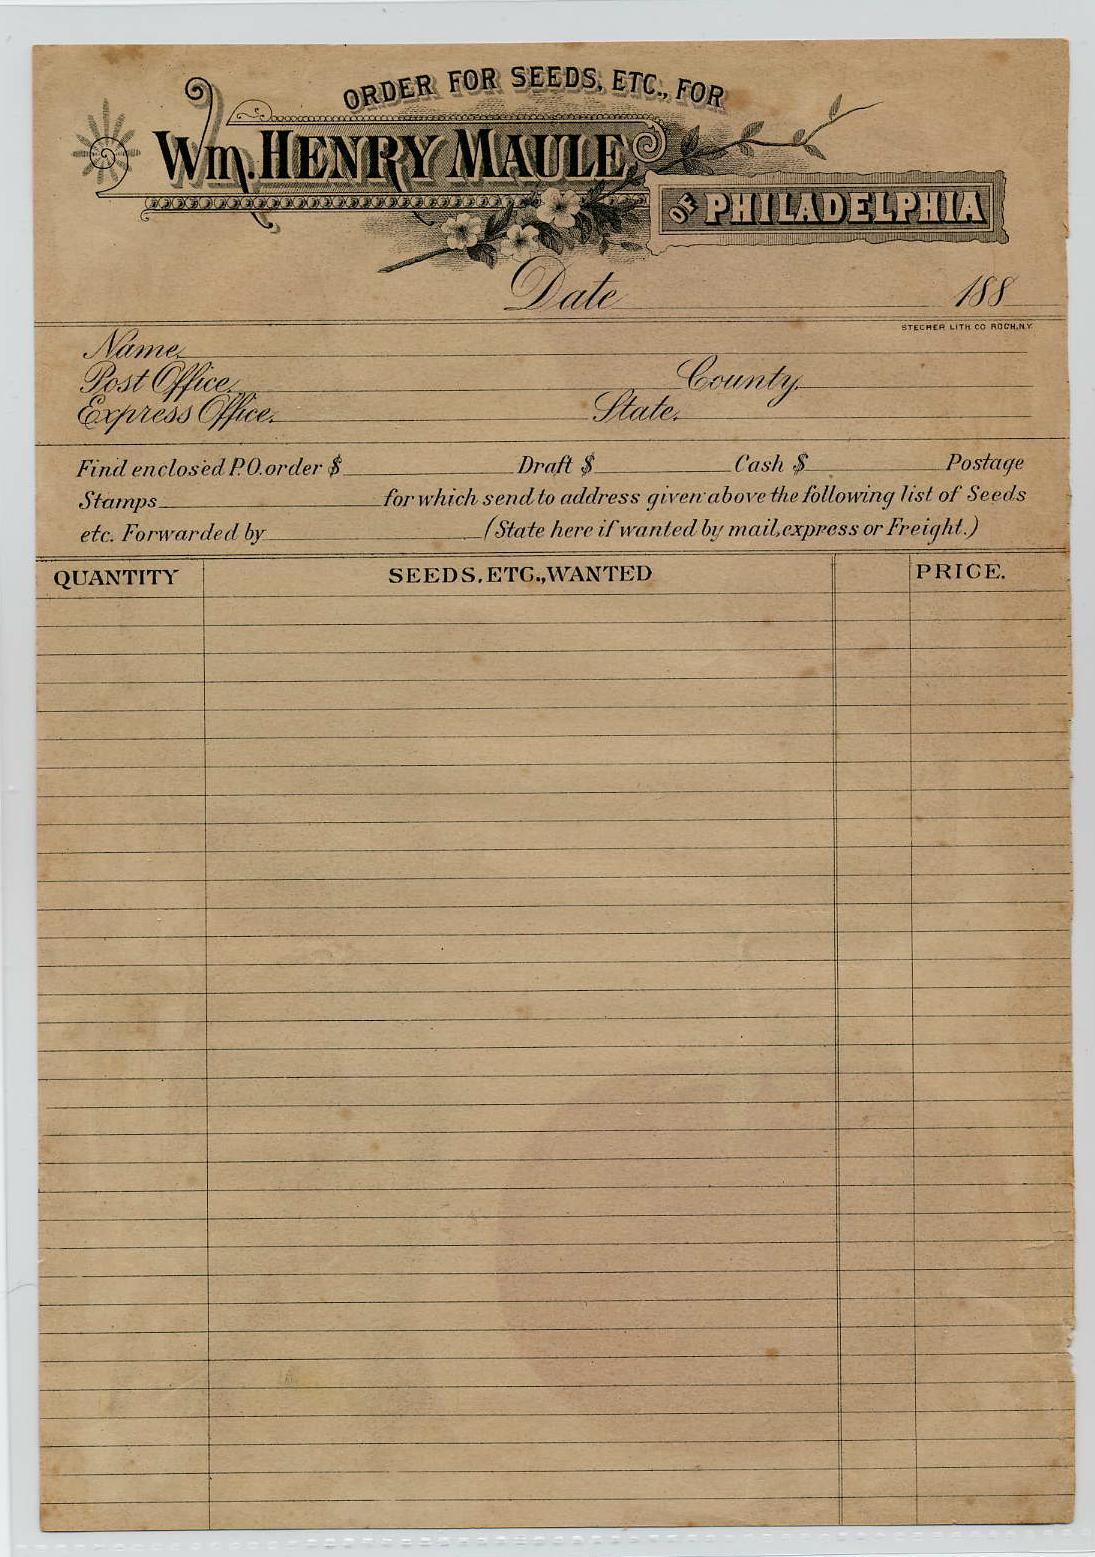 ORDER FOR SEEDS, ETC., FOR
Wm. HENRY MAULE
OF PHILADELPHIA
Date 188
STECHER LITH CO ROCH, N.Y.
Name
Post Office County
Express Office. State.
Find enclosed P.O. order $ Draft $ Cash $ Postage
Stamps for which send to address given above the following list of Seeds
etc. Forwarded by (State here if wanted by mail, express or Freight.)
QUANTITY SEEDS, ETC., WANTED PRICE.